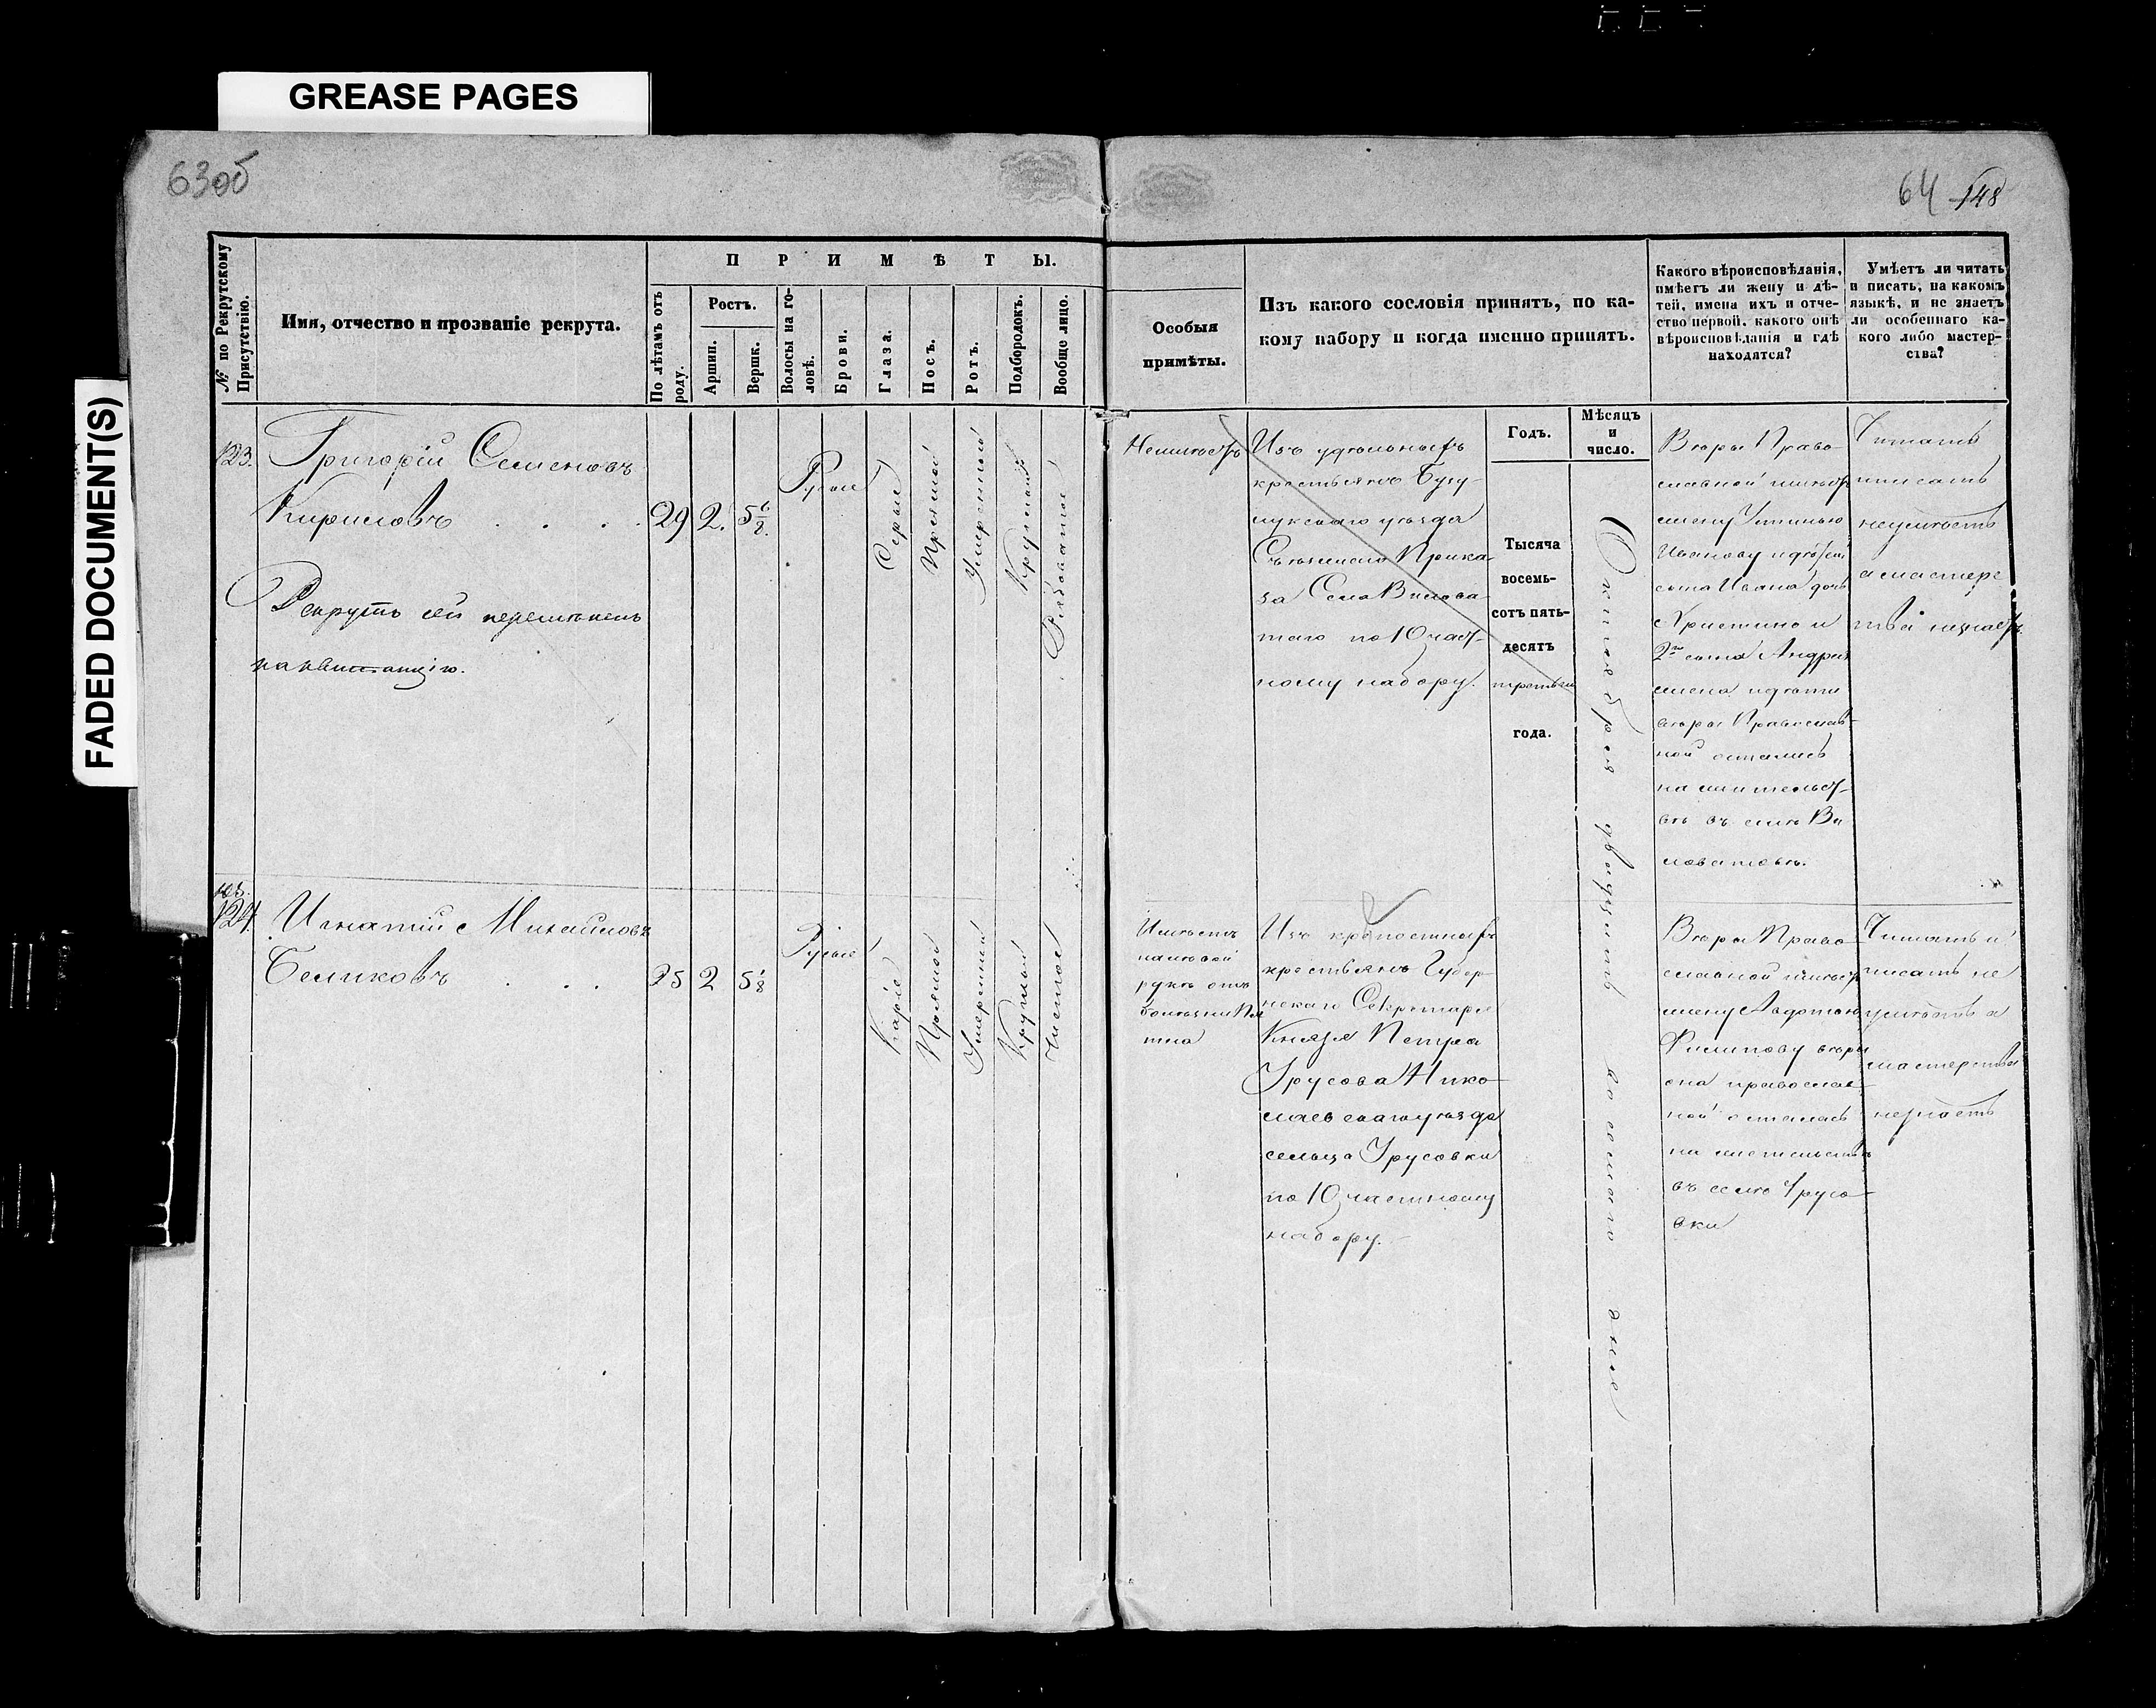 GREASE PAGES
FADED DOCUMENT(S)
63об
64 148
№ по Рекрутскому Присутствію.
Имя, отчество и прозваніе рекрута.
ПРИМѢТЫ.
По лѣтамъ отъ роду.
Ростъ.
Аршин.
Вершк.
Волосы на головѣ.
Брови.
Глаза.
Носъ.
Ротъ.
Подбородокъ.
Вообще лицо.
Особыя
примѣты.
Изъ какого сословія принятъ, по ка-
кому набору и когда именно принятъ.
Какого вѣроисповѣданія,
имѣетъ ли жену и дѣ-
тей, имена ихъ и отче-
ство первой, какого онѣ
вѣроисповѣданія и гдѣ
находятся?
Умѣетъ ли читать
и писать, на какомъ
языкѣ, и не знаетъ
ли особеннаго ка-
кого либо мастер-
ства?
Годъ.
Мѣсяцъ
и
число.
123.
Григорій Семеновъ
Кириловъ
Рекрутъ сей перемѣненъ
на квитанцію.
29
2.
5 6/8.
Русые
Серые
Прямой
Умеренный
Круглый
Рябоватое
Неимѣетъ
Изъ удѣльныхъ
крестьянъ Бузу-
лукскаго уѣзда
Съѣзжаго Прика-
за Села Вилова-
таго по 10 част-
ному набору.
Тысяча
восемь-
сотъ пять-
десятъ
третьяго
года.
Октября двадцать восьмаго дня
Вѣры Право-
славной имѣетъ
жену Устинью
Иванову и дѣтей
сына Ивана дочь
Христину и
2го сына Андрея
жена и дѣти
вѣры Православ-
ной остались
на жительст-
вѣ въ селѣ Ви
ловатовѣ.
Читать
писать
неумѣетъ
а мастерс
тва незнаетъ
124.
Игнатій Михайловъ
Беликовъ
25
2
5 1/8
Русые
Каріе
Прямой
Умеренный
Круглый
Чистое
Имѣетъ
на лѣвой
рукѣ отъ
болѣзни Пя
тна
Изъ крѣпостныхъ
крестьянъ Губер
нскаго Секретаря
Князя Петра
Урусова Нико-
лаевскаго уѣзда
сельца Урусовки
по 10 частному
набору.
Вѣры Право-
славной имѣетъ
жену Авдотью
Филипову вѣры
она православ-
ной осталась
на жительствѣ
въ селѣ Урусо-
вки
Читать и
писать не
умѣетъ а
мастерства
незнаетъ